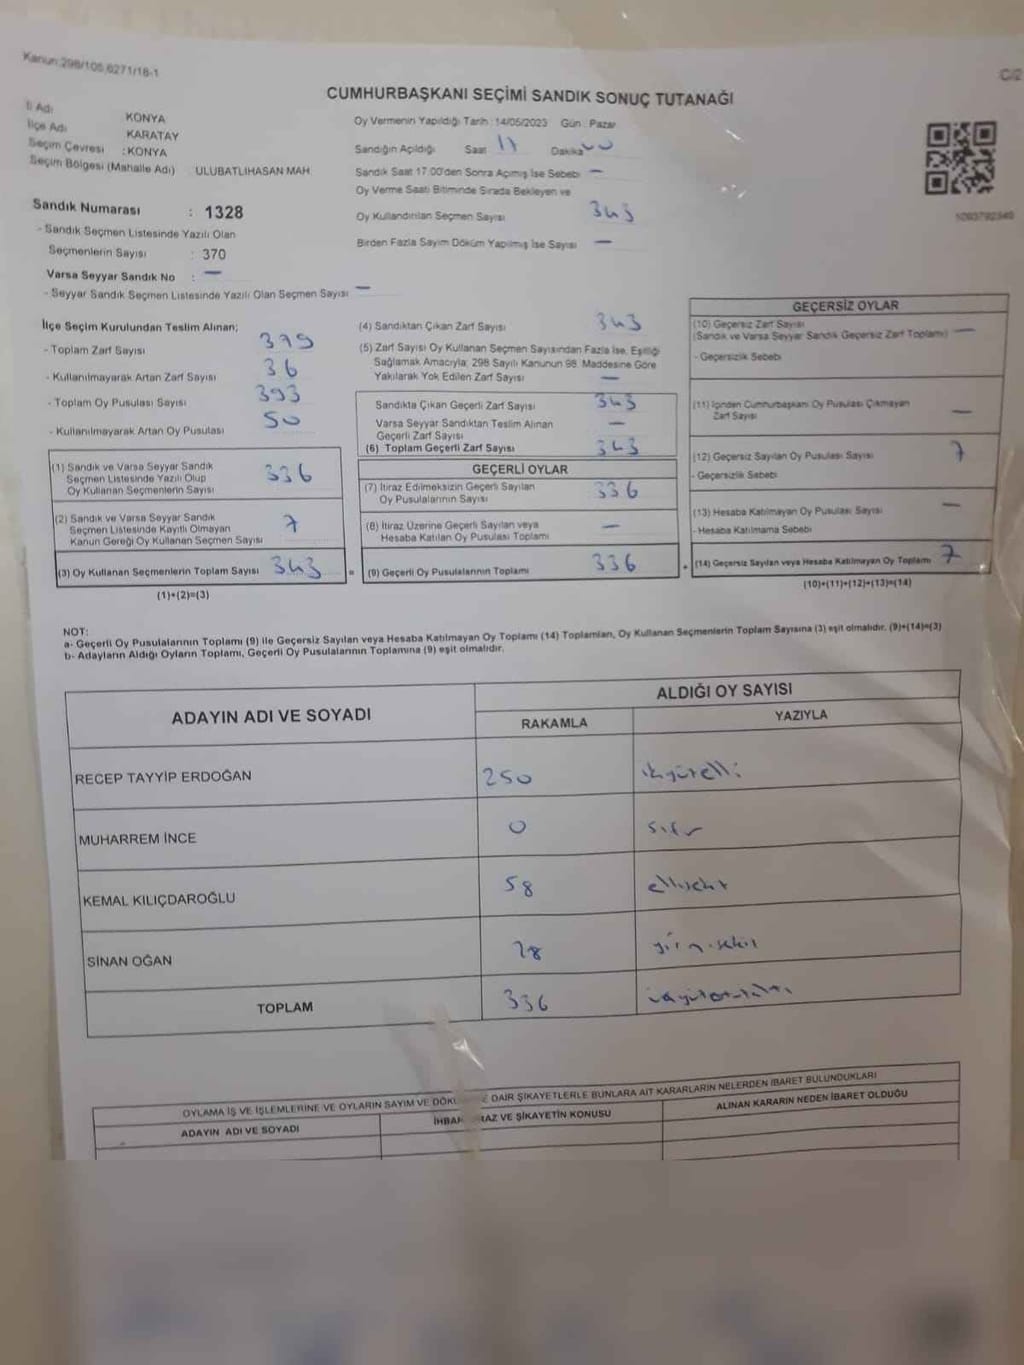 Kanun:298/105,6271/18-1
C/2
CUMHURBAŞKANI SEÇİMİ SANDIK SONUÇ TUTANAĞI
İl Adı KONYA
İlçe Adı KARATAY
Seçim Çevresi : KONYA
Seçim Bölgesi (Mahalle Adı) : ULUBATLIHASAN MAH.
Sandık Numarası : 1328
- Sandık Seçmen Listesinde Yazılı Olan
Seçmenlerin Sayısı : 370
Varsa Seyyar Sandık No : —
- Seyyar Sandık Seçmen Listesinde Yazılı Olan Seçmen Sayısı —
Oy Vermenin Yapıldığı Tarih : 14/05/2023 Gün : Pazar
Sandığın Açıldığı Saat Dakika
Sandık Saat 17.00'den Sonra Açımış İse Sebebi —
Oy Verme Saati Bitiminde Sırada Bekleyen ve
Oy Kullandırılan Seçmen Sayısı 343
Birden Fazla Sayım Döküm Yapılmış İse Sayısı —
İlçe Seçim Kurulundan Teslim Alınan;
- Toplam Zarf Sayısı 379
- Kullanılmayarak Artan Zarf Sayısı 36
- Toplam Oy Pusulası Sayısı 393
- Kullanılmayarak Artan Oy Pusulası 50
(1) Sandık ve Varsa Seyyar Sandık
Seçmen Listesinde Yazılı Olup
Oy Kullanan Seçmenlerin Sayısı 336
(2) Sandık ve Varsa Seyyar Sandık
Seçmen Listesinde Kayıtlı Olmayan
Kanun Gereği Oy Kullanan Seçmen Sayısı 7
(3) Oy Kullanan Seçmenlerin Toplam Sayısı 343
(1)+(2)=(3)
(4) Sandıktan Çıkan Zarf Sayısı 343
(5) Zarf Sayısı Oy Kullanan Seçmen Sayısından Fazla İse, Eşitliği
Sağlamak Amacıyla; 298 Sayılı Kanunun 98. Maddesine Göre
Yakılarak Yok Edilen Zarf Sayısı —
Sandıkta Çıkan Geçerli Zarf Sayısı 343
Varsa Seyyar Sandıktan Teslim Alınan
Geçerli Zarf Sayısı —
(6) Toplam Geçerli Zarf Sayısı 343
GEÇERLİ OYLAR
(7) İtiraz Edilmeksizin Geçerli Sayılan
Oy Pusulalarının Sayısı 336
(8) İtiraz Üzerine Geçerli Sayılan veya
Hesaba Katılan Oy Pusulası Toplamı —
= (9) Geçerli Oy Pusulalarının Toplamı 336 +
GEÇERSİZ OYLAR
(10) Geçersiz Zarf Sayısı
(Sandık ve Varsa Seyyar Sandık Geçersiz Zarf Toplamı) —
- Geçersizlik Sebebi
(11) İçinden Cumhurbaşkanı Oy Pusulası Çıkmayan
Zarf Sayısı —
(12) Geçersiz Sayılan Oy Pusulası Sayısı 7
- Geçersizlik Sebebi
(13) Hesaba Katılmayan Oy Pusulası Sayısı —
- Hesaba Katılmama Sebebi
(14) Geçersiz Sayılan veya Hesaba Katılmayan Oy Toplamı 7
(10)+(11)+(12)+(13)=(14)
NOT:
a- Geçerli Oy Pusulalarının Toplamı (9) ile Geçersiz Sayılan veya Hesaba Katılmayan Oy Toplamı (14) Toplamları, Oy Kullanan Seçmenlerin Toplam Sayısına (3) eşit olmalıdır. (9)+(14)=(3)
b- Adayların Aldığı Oyların Toplamı, Geçerli Oy Pusulalarının Toplamına (9) eşit olmalıdır.
ADAYIN ADI VE SOYADI
ALDIĞI OY SAYISI
RAKAMLA YAZIYLA
RECEP TAYYİP ERDOĞAN 250 ikiyüzelli
MUHARREM İNCE 0 sıfır
KEMAL KILIÇDAROĞLU 58 ellisekiz
SİNAN OĞAN 28 yirmisekiz
TOPLAM 336 üçyüzotuzaltı
OYLAMA İŞ VE İŞLEMLERİNE VE OYLARIN SAYIM VE DAİR ŞİKAYETLERLE BUNLARA AİT KARARLARIN NELERDEN İBARET BULUNDUKLARI
ADAYIN ADI VE SOYADI
VE ŞİKAYETİN KONUSU
ALINAN KARARIN NEDEN İBARET OLDUĞU